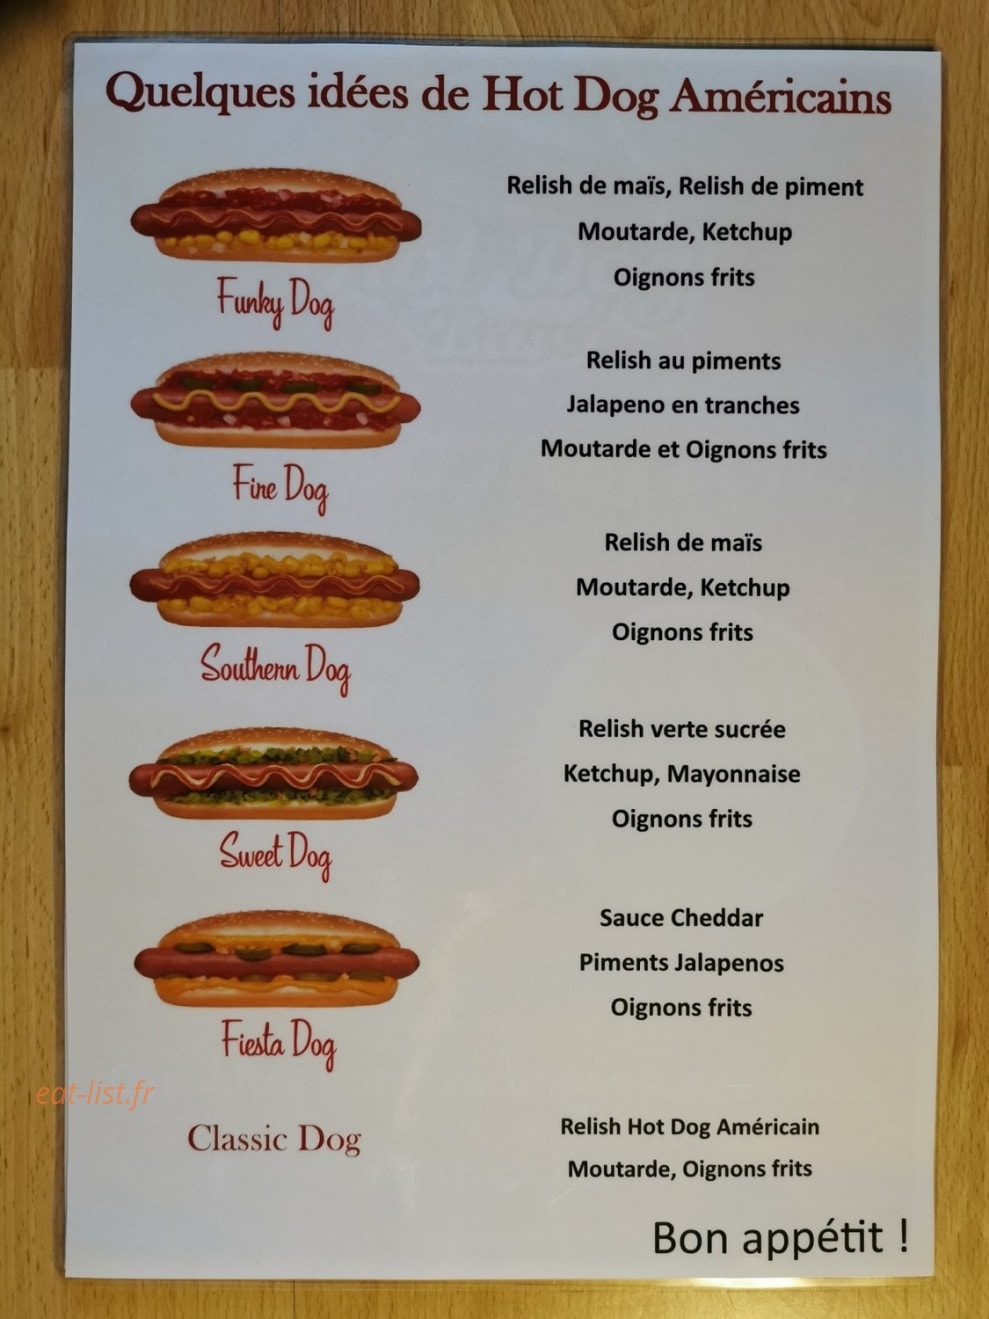 Quelques idées de Hot Dog Américains
Relish de maïs, Relish de piment
Moutarde, Ketchup
Oignons frits
Funky Dog
Relish au piments
Jalapeno en tranches
Moutarde et Oignons frits
Fire Dog
Relish de maïs
Moutarde, Ketchup
Oignons frits
Southern Dog
Relish verte sucrée
Ketchup, Mayonnaise
Oignons frits
Sweet Dog
Sauce Cheddar
Piments Jalapenos
Oignons frits
Fiesta Dog
eat-list.fr
Classic Dog
Relish Hot Dog Américain
Moutarde, Oignons frits
Bon appétit !